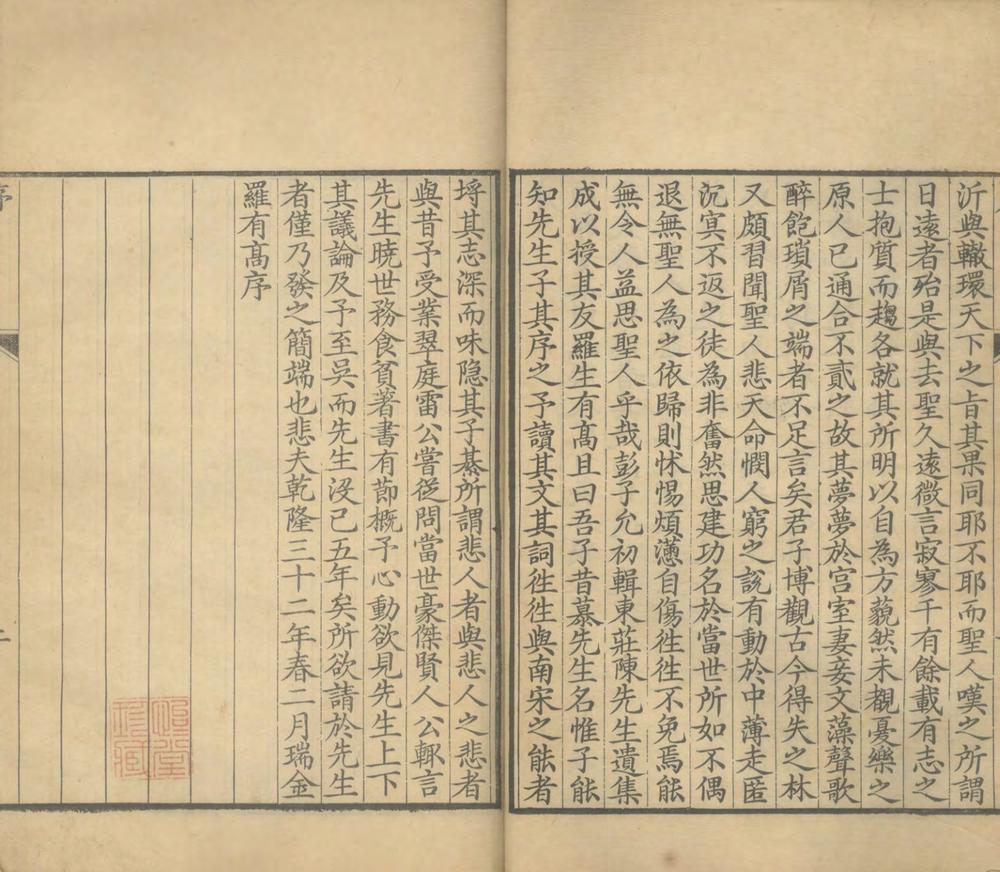 沂與轍環天下之旨其果同耶不耶而聖人嘆之所謂
日遠者殆是與去聖久遠微言寂寥千有餘載有志之
士抱質而趨各就其所明以自為方藐然未覩憂樂之
原人已通合不貳之故其夢夢於宫室妻妾文藻聲歌
醉飽瑣屑之端者不足言矣君子博觀古今得失之林
又頗習聞聖人悲天命憫人窮之說有動於中薄走匿
沉冥不返之徒為非奮然思建功名於當世所如不偶
退無聖人為之依歸則怵惕煩懣自傷徃徃不免焉能
無令人益思聖人乎哉彭子允初輯東莊陳先生遺集
成以授其友羅生有髙且曰吾子昔慕先生名惟子能
知先生子其序之予讀其文其詞徃徃與南宋之能者
埒其志深而味隐其子綦所謂悲人者與悲人之悲者
與昔予受業翠庭雷公嘗從問當世豪傑賢人公輙言
先生曉世務食貧著書有節槪予心動欲見先生上下
其議論及予至吳而先生沒已五年矣所欲請於先生
者僅乃發之簡端也悲夫乾隆三十二年春二月瑞金
羅有髙序
序
二